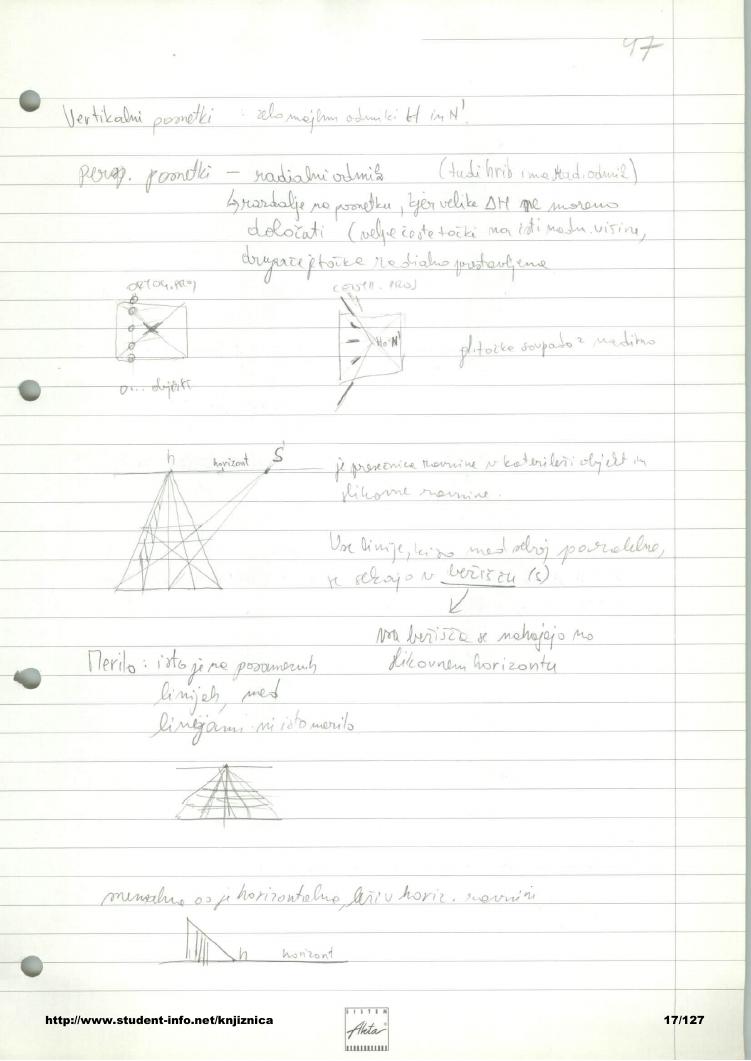 47
Vertikalni posnetki : zelo majhni odmiki H in N'.
persp. posnetki – radialni odmik (tudi hrib ima rad. odmik)
↳ razdalje na posnetku, kjer velike ΔH ne moremo
določati (velja če ste točki na isti nadm. višini,
drugače je točka radialno prestavljena
ORTOG. PROJ
CENTR. PROJ
H=N'
gl. točke sovpada z nadirno
o... objekti
h
horizont
S'
je presečnica ravnine v kateri leži objekt in
slikovne ravnine.
Vse linije, ki so med seboj paralelne,
se sekajo v bežišču (s)
vsa bežišča se nahajajo na
Merilo : isto je na posameznih
slikovnem horizontu
linijah, med
linijami ni isto merilo
snemalna os je horizontalna, leži v horiz. ravnini
h
horizont
http://www.student-info.net/knjiznica
SISTEM
Akta
17/127